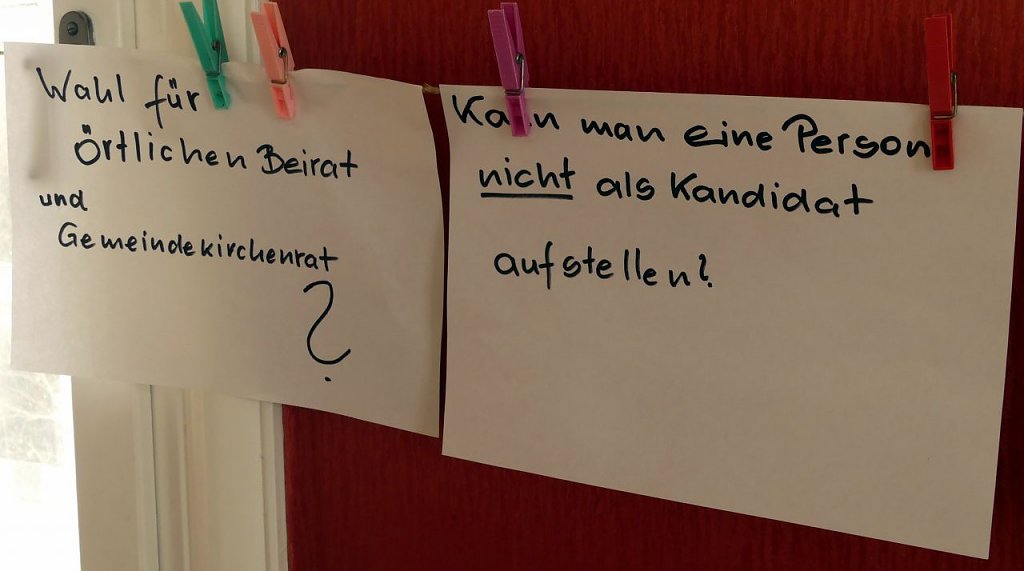 Wahl für
örtlichen Beirat
und
Gemeindekirchenrat
?
Kann man eine Person
nicht als Kandidat
aufstellen?